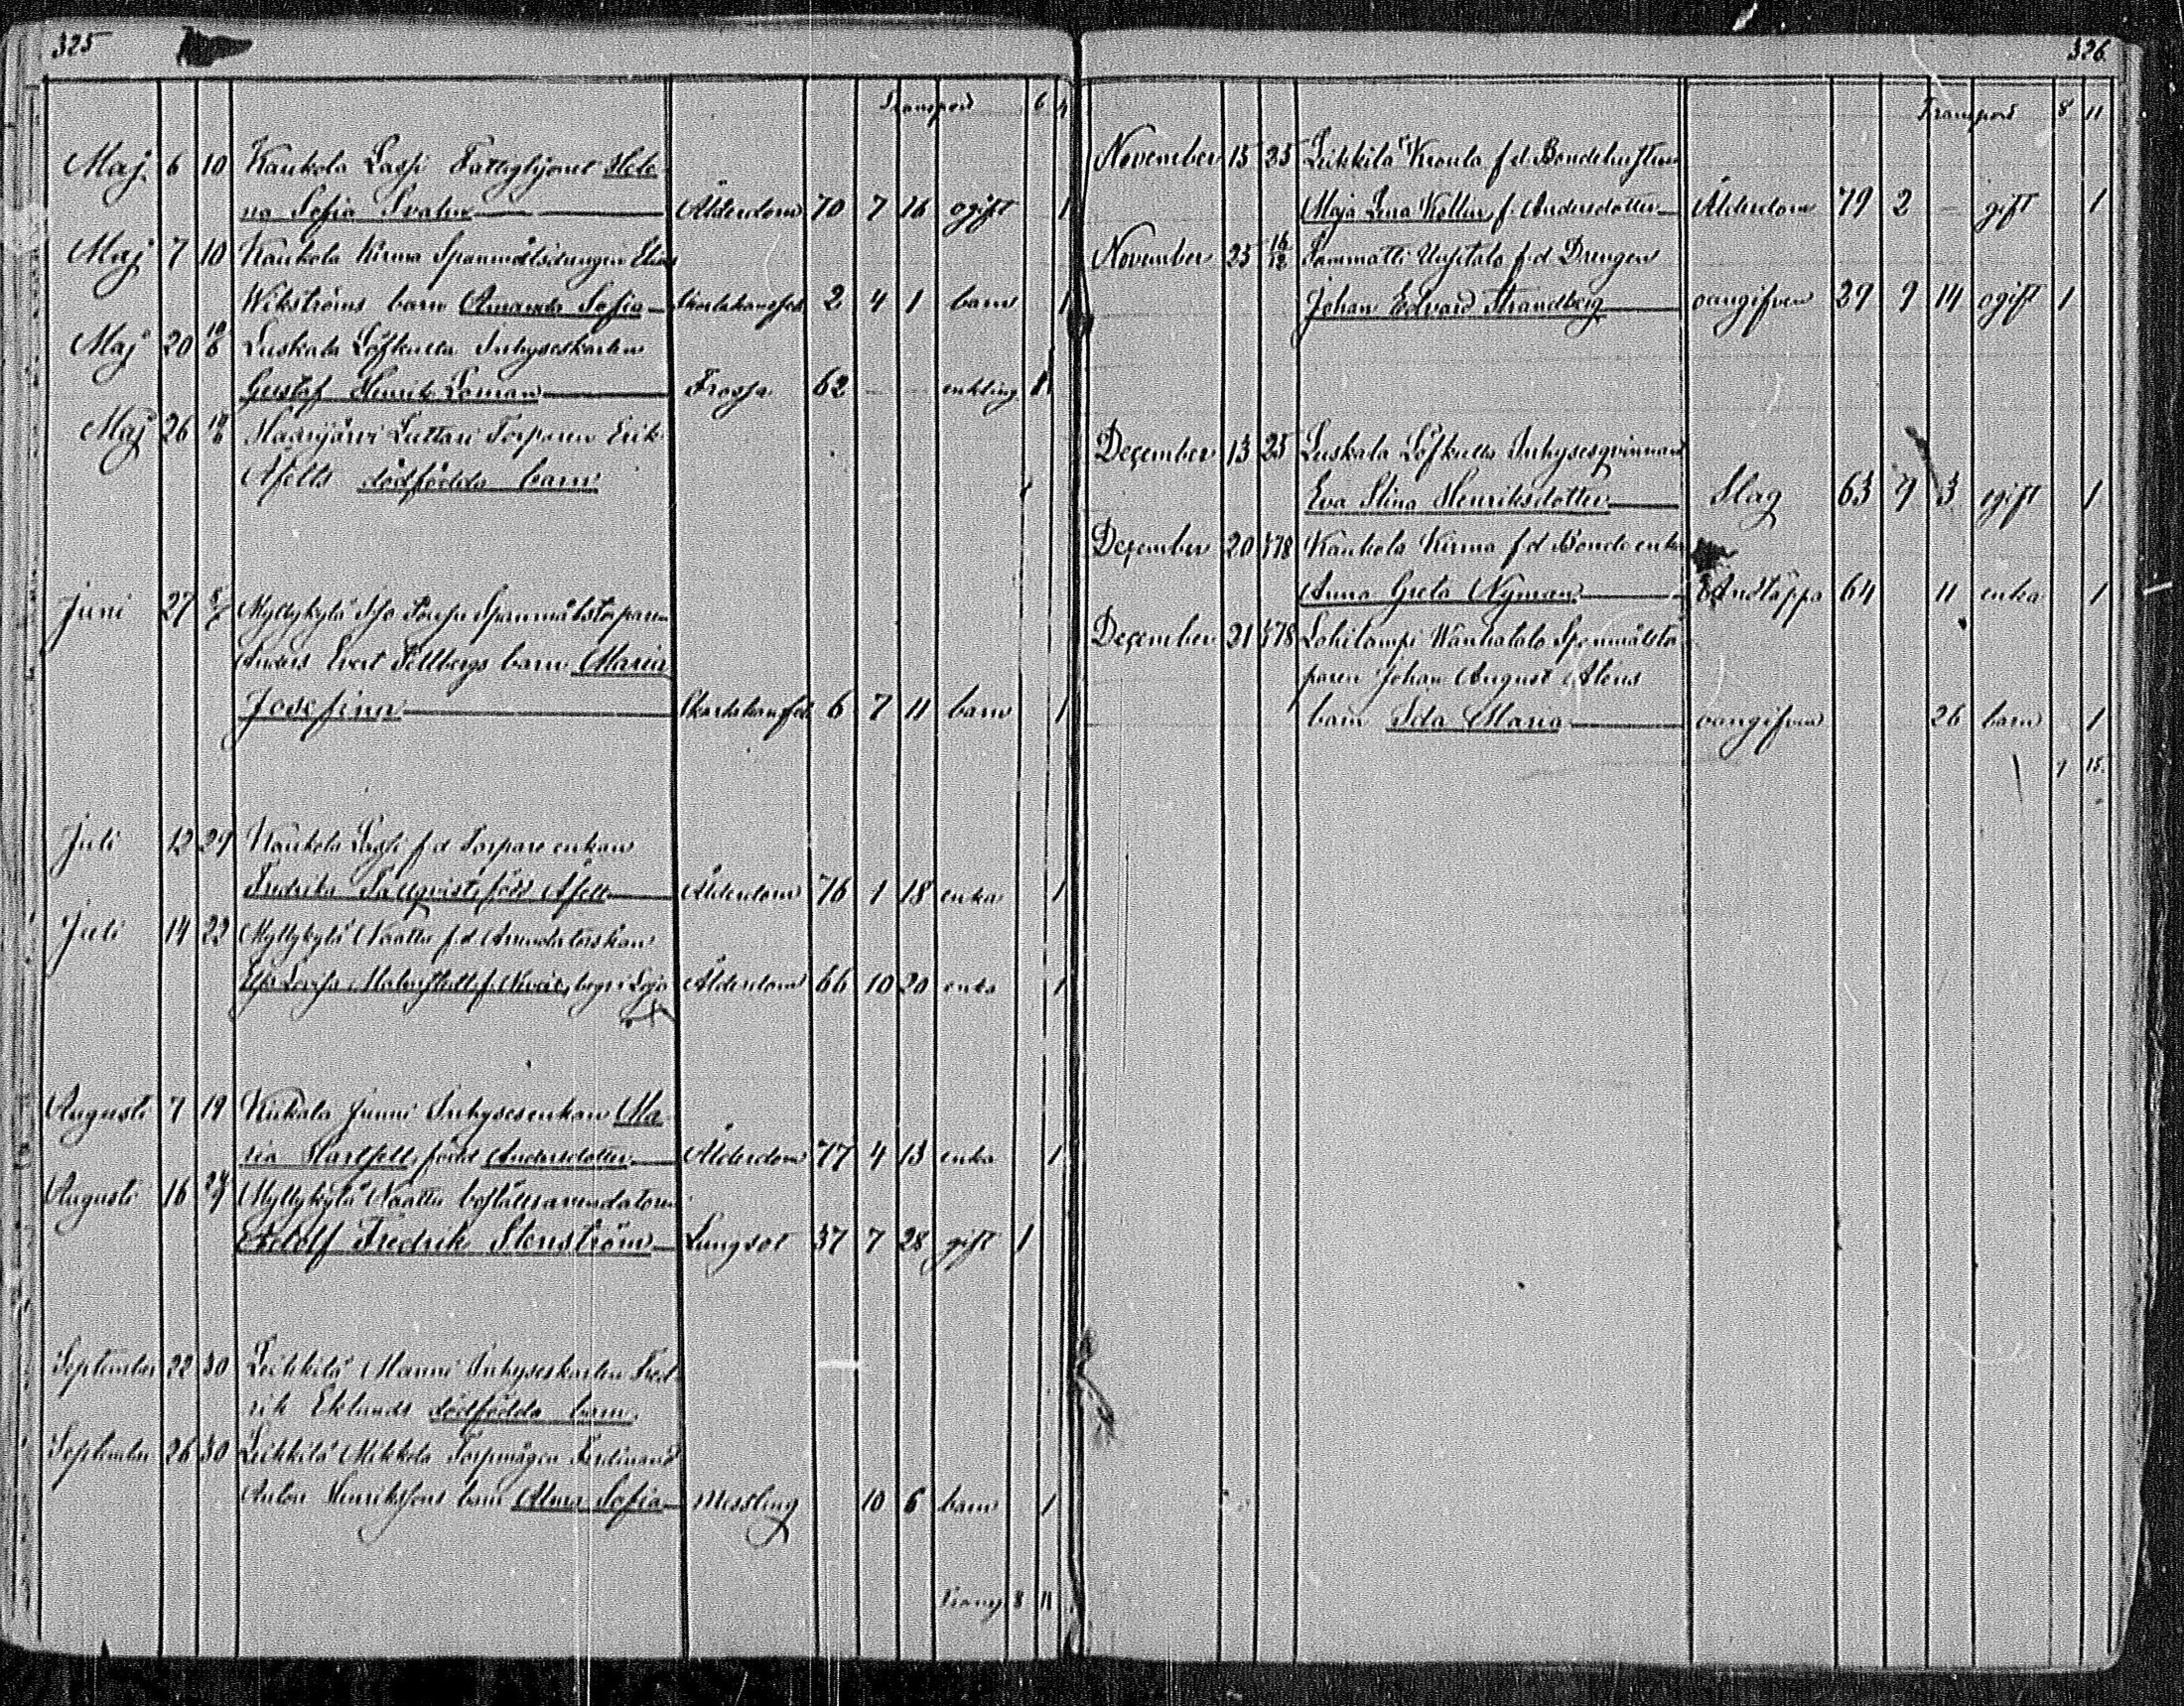 325
Transport 6 4
Maj 6 10 Kaukola Lassi Fattighjonet Hele-
na Sofia Svahn Ålderdom 70 7 16 ogift 1
Maj 7 10 Kaukola Kirma Spanmålsdrängen Elias
Wikströms barn Amanda Sofia 2 4 1 barn 1
Maj 20 10/6 Luskala Löfkulla Inhyseskarlen
Gustaf Henrik Loman Frossa 62 — — enkling 1
Maj 26 10/6 Haarijärvi Luttari Torparen Erik
Afelts dödfödda barn
Juni 27 Myllykylä Spanmålstorparen
Anders Evert Fellbergs barn Maria
Josefina 6 7 11 barn 1
Juli 12 29 Kaukola Lassi f.d. Torpare enkan
Fredrika född Afelt Ålderdom 76 1 18 enka 1
Juli 14 22 Myllykylä Naattu f.d. Arrendatorskan
Lovisa Malmstedt f. Ålderdom 66 10 20 enka 1
Augusti 7 19 Junni Inhysesenkan Ma-
ria Hartfelt, född Andersdotter Ålderdom 77 4 13 enka 1
Augusti 16 Myllykylä Naattu boställsarrendatoren
Adolf Fredrik Stenström Lungsot 37 7 28 gift 1
September 22 30 Leikkilä Manni Inhyseskarlen Fred-
rik Eklunds dödfödda barn
September 26 30 Leikkilä Mikkola Torpmågen Ferdinand
Anton Henrikssons barn Alma Sofia Messling 10 6 barn 1
Transp 8 11
326
Transport 8 11
November 15 25 Leikkilä Kroula f.d. Bondehustrun
Maja Lena Kollin f. Andersdotter Ålderdom 79 2 — gift 1
November 25 16/12 Sammatti Uusitalo f.d. Drengen
Johan Edvard Strandberg oangifven 39 9 14 ogift 1
December 13 25 Luskala Löfkulla Inhysesqvinnan
Eva Stina Henriksdotter Slag 63 9 3 ogift 1
December 20 78 Kaukola Kirma f.d. Bonde enka
Anna Greta Nyman Andtäppa 64 11 enka 1
December 21 78 Lohilampi Wanhatalo Spanmålstor-
paren Johan August Alens
barn Ida Maria oangifven 26 barn 1
9 15